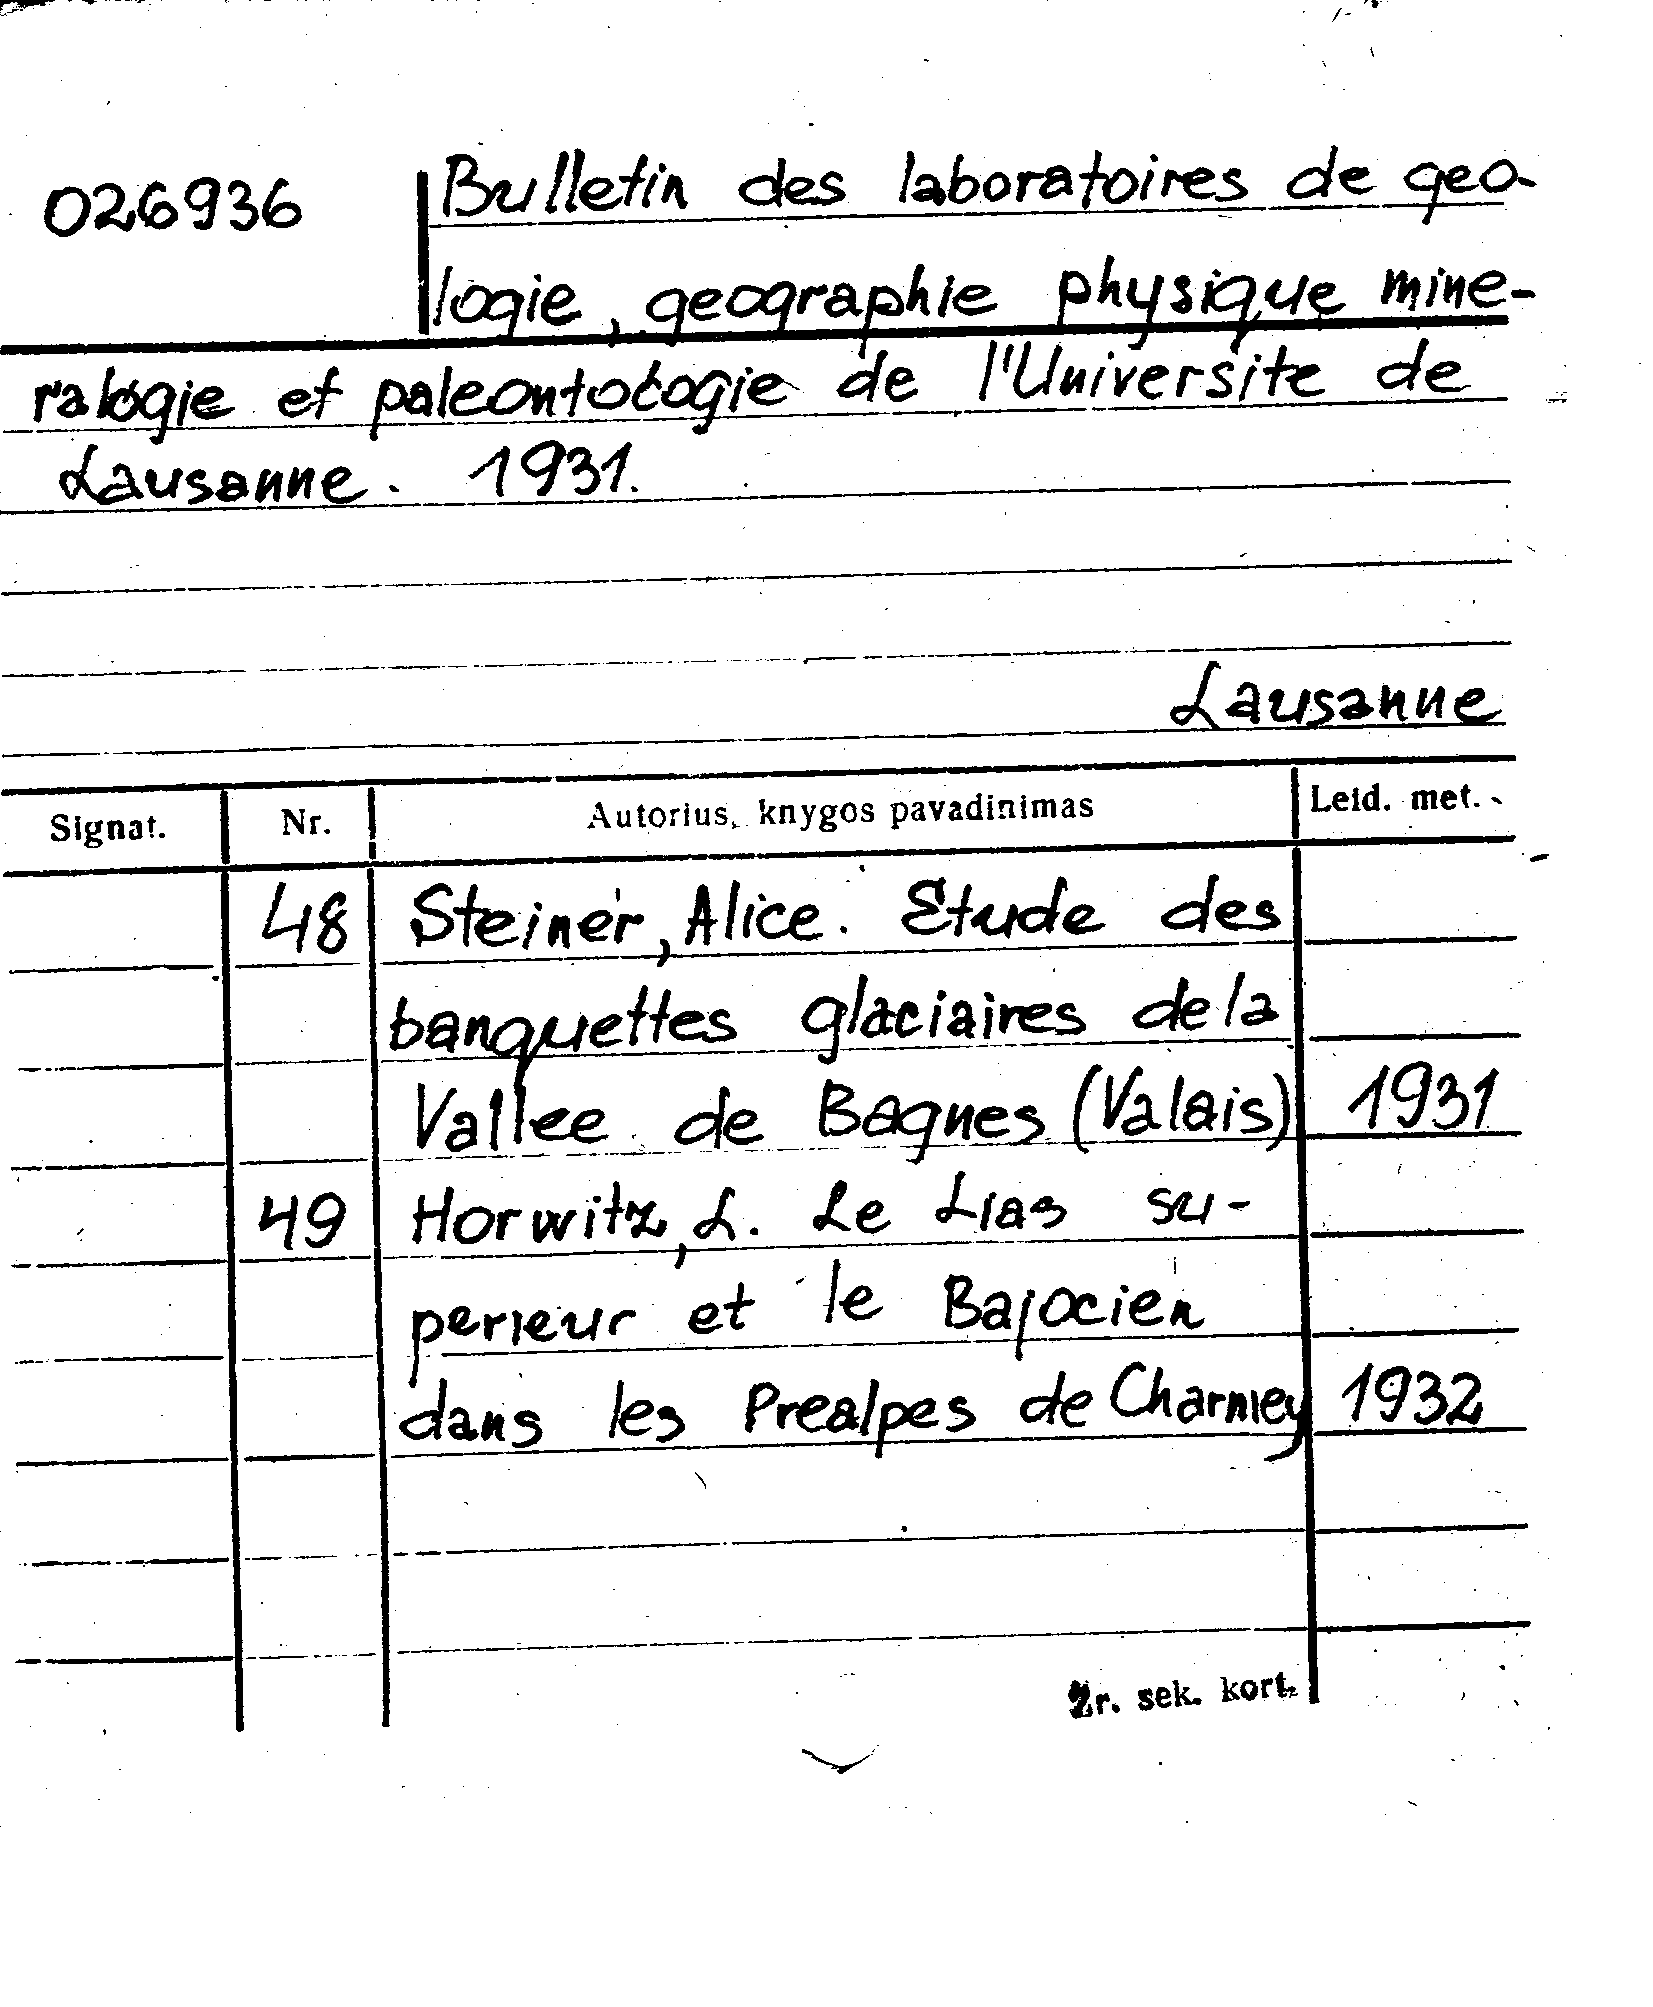 026936 Bulletin des laboratoires de geo-
logie, geographie physique mine-
ralogie et paleontologie de l'Universite de
Lausanne. 1931.
Lausanne
Signat. Nr. Autorius, knygos pavadinimas Leid. met.
48 Steiner, Alice. Etude des
banquettes glaciaires de la
Vallee de Bagnes (Valais) 1931
49 Horwitz, L. Le Lias su-
perieur et le Bajocien
dans les Prealpes de Charmey 1932
Žr. sek. kort.